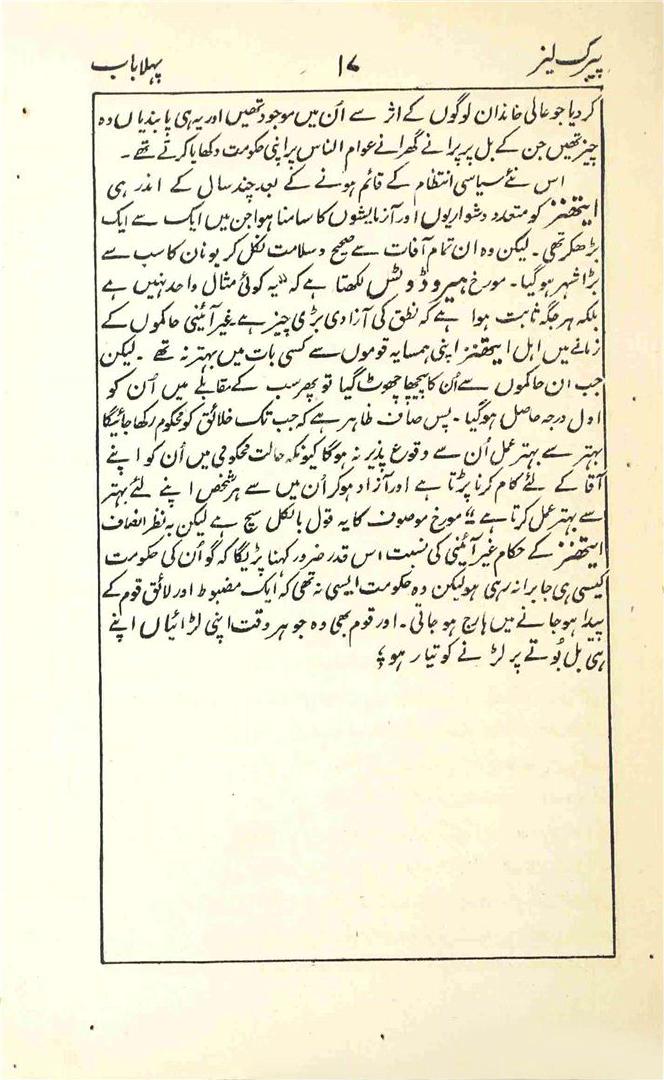 پیرک لیز ۱۷ پہلا باب
کر دیا جو عالی خاندان لوگوں کے اثر سے اُن میں موجود تھیں اور یہ ہی پابندیاں وہ
چیز تھیں جن کے بل پر پرانے گھرانے عوام الناس پر اپنی حکومت دکھایا کرتے تھے۔
اس نئے سیاسی انتظام کے قائم ہونے کے بعد چند سال کے اندر ہی
ایتھنز کو متعدد دشواریوں اور آزمایشوں کا سامنا ہوا جن میں ایک سے ایک
بڑھکر تھی۔ لیکن وہ ان تمام آفات سے صحیح و سلامت نکل کر یونان کا سب سے
بڑا شہر ہو گیا۔ مورخ ہیروڈوٹس لکھتا ہے کہ "یہ کوئی مثال واحد نہیں ہے
بلکہ ہر جگہ ثابت ہوا ہے کہ نطق کی آزادی بڑی چیز ہے۔ غیر آئینی حاکموں کے
زمانے میں اہل ایتھنز اپنی ہمسایہ قوموں سے کسی بات میں بہتر نہ تھے۔ لیکن
جب ان حاکموں سے اُن کا پیچھا چھوٹ گیا تو پھر سب کے مقابلے میں اُن کو
اول درجہ حاصل ہو گیا۔ پس صاف ظاہر ہے کہ جب تک خلائق کو محکوم رکھا جائیگا
بہتر سے بہتر عمل اُن سے وقوع پذیر نہ ہوگا کیونکہ حالت محکومی میں اُن کو اپنے
آقا کے لئے کام کرنا پڑتا ہے اور آزاد ہوکر اُن میں سے ہر شخص اپنے لئے بہتر
سے بہتر عمل کرتا ہے" مورخ موصوف کا یہ قول بالکل سچ ہے لیکن بہ نظر انصاف
ایتھنز کے حکام غیر آئینی کی نسبت اس قدر ضرور کہنا پڑیگا کہ گو اُن کی حکومت
کیسی ہی جابرانہ رہی ہو لیکن وہ حکومت ایسی نہ تھی کہ ایک مضبوط اور لائق قوم کے
پیدا ہو جانے میں ہارج ہو جاتی۔ اور قوم بھی وہ جو ہر وقت اپنی لڑائیاں اپنے
ہی بل بُوتے پر لڑنے کو تیار ہو؛